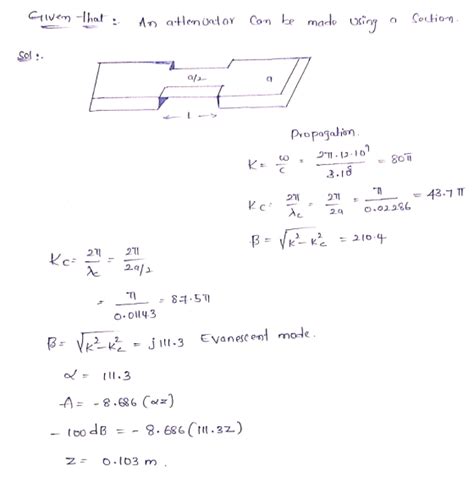 Given that : An attenuator can be made using a section.
Sol :.
a/2
a
← l →
Propagation.
K = ω/c = 2π·12·10⁹/3·10⁸ = 80π
Kc = 2π/λc = 2π/2a = π/0.02286 = 43.7π
β = √(K² - Kc²) = 210.4
Kc = 2π/λc = 2π/(2a/2)
= π/0.01143 = 87.5π
β = √(K² - Kc²) = j111.3 Evanescent mode.
α = 111.3
A = -8.686 (αz)
- 100 dB = - 8.686 (111.3z)
z = 0.103 m.